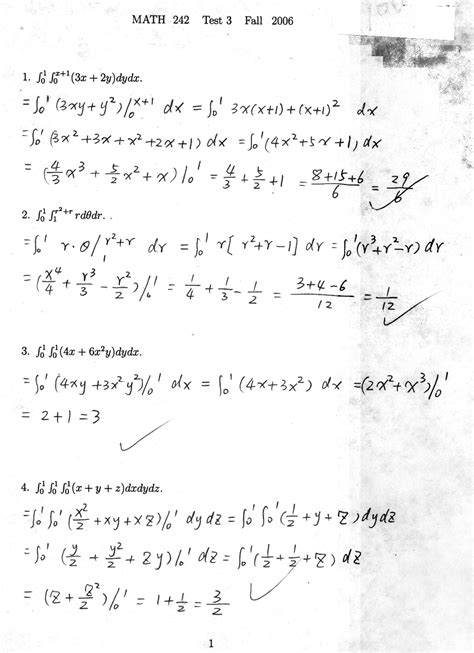 MATH 242 Test 3 Fall 2006
1. ∫₀¹ ∫₀ˣ⁺¹(3x + 2y)dydx.
= ∫₀¹ (3xy + y²)/₀ˣ⁺¹ dx = ∫₀¹ 3x(x+1) + (x+1)² dx
= ∫₀¹ (3x² + 3x + x² + 2x + 1) dx = ∫₀¹ (4x² + 5x + 1) dx
= (4/3 x³ + 5/2 x² + x)/₀¹ = 4/3 + 5/2 + 1 = (8+15+6)/6 = 29/6
2. ∫₀¹ ∫₁^(r²+r) rdθdr.
= ∫₀¹ r·θ/₁^(r²+r) dr = ∫₀¹ r[r²+r−1] dr = ∫₀¹ (r³+r²−r) dr
= (x⁴/4 + r³/3 − r²/2)/₀¹ = 1/4 + 1/3 − 1/2 = (3+4−6)/12 = 1/12
3. ∫₀¹ ∫₀¹(4x + 6x²y)dydx.
= ∫₀¹ (4xy + 3x²y²)/₀¹ dx = ∫₀¹ (4x + 3x²) dx = (2x² + x³)/₀¹
= 2 + 1 = 3
4. ∫₀¹ ∫₀¹ ∫₀¹(x + y + z)dxdydz.
= ∫₀¹ ∫₀¹ (x²/2 + xy + xz)/₀¹ dydz = ∫₀¹ ∫₀¹ (1/2 + y + z) dydz
= ∫₀¹ (y/2 + y²/2 + zy)/₀¹ dz = ∫₀¹ (1/2 + 1/2 + z) dz
= (z + z²/2)/₀¹ = 1 + 1/2 = 3/2
1